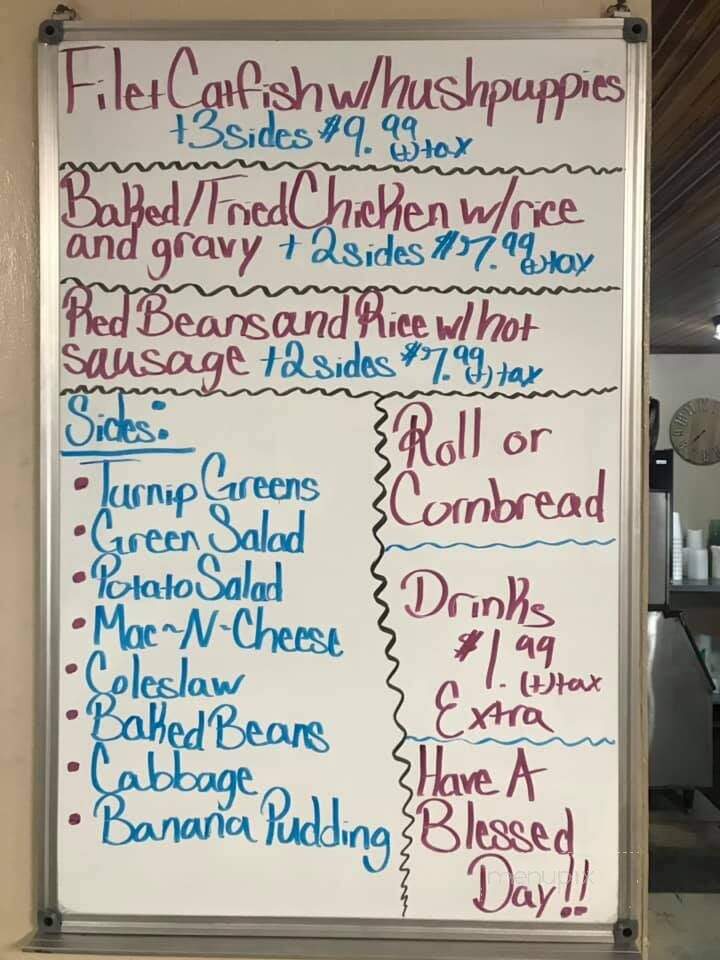 Filet Catfish w/hushpuppies
+3sides $9.99 (+)tax
Baked/Fried Chicken w/rice
and gravy + 2sides $7.99 (+)tax
Red Beans and Rice w/hot
sausage +2sides $7.99 (+)tax
Sides:
• Turnip Greens
• Green Salad
• Potato Salad
• Mac~N-Cheese
• Coleslaw
• Baked Beans
• Cabbage
• Banana Pudding
Roll or
Cornbread
Drinks
$1.99
(+)tax
Extra
Have A
Blessed
Day!!
menupix